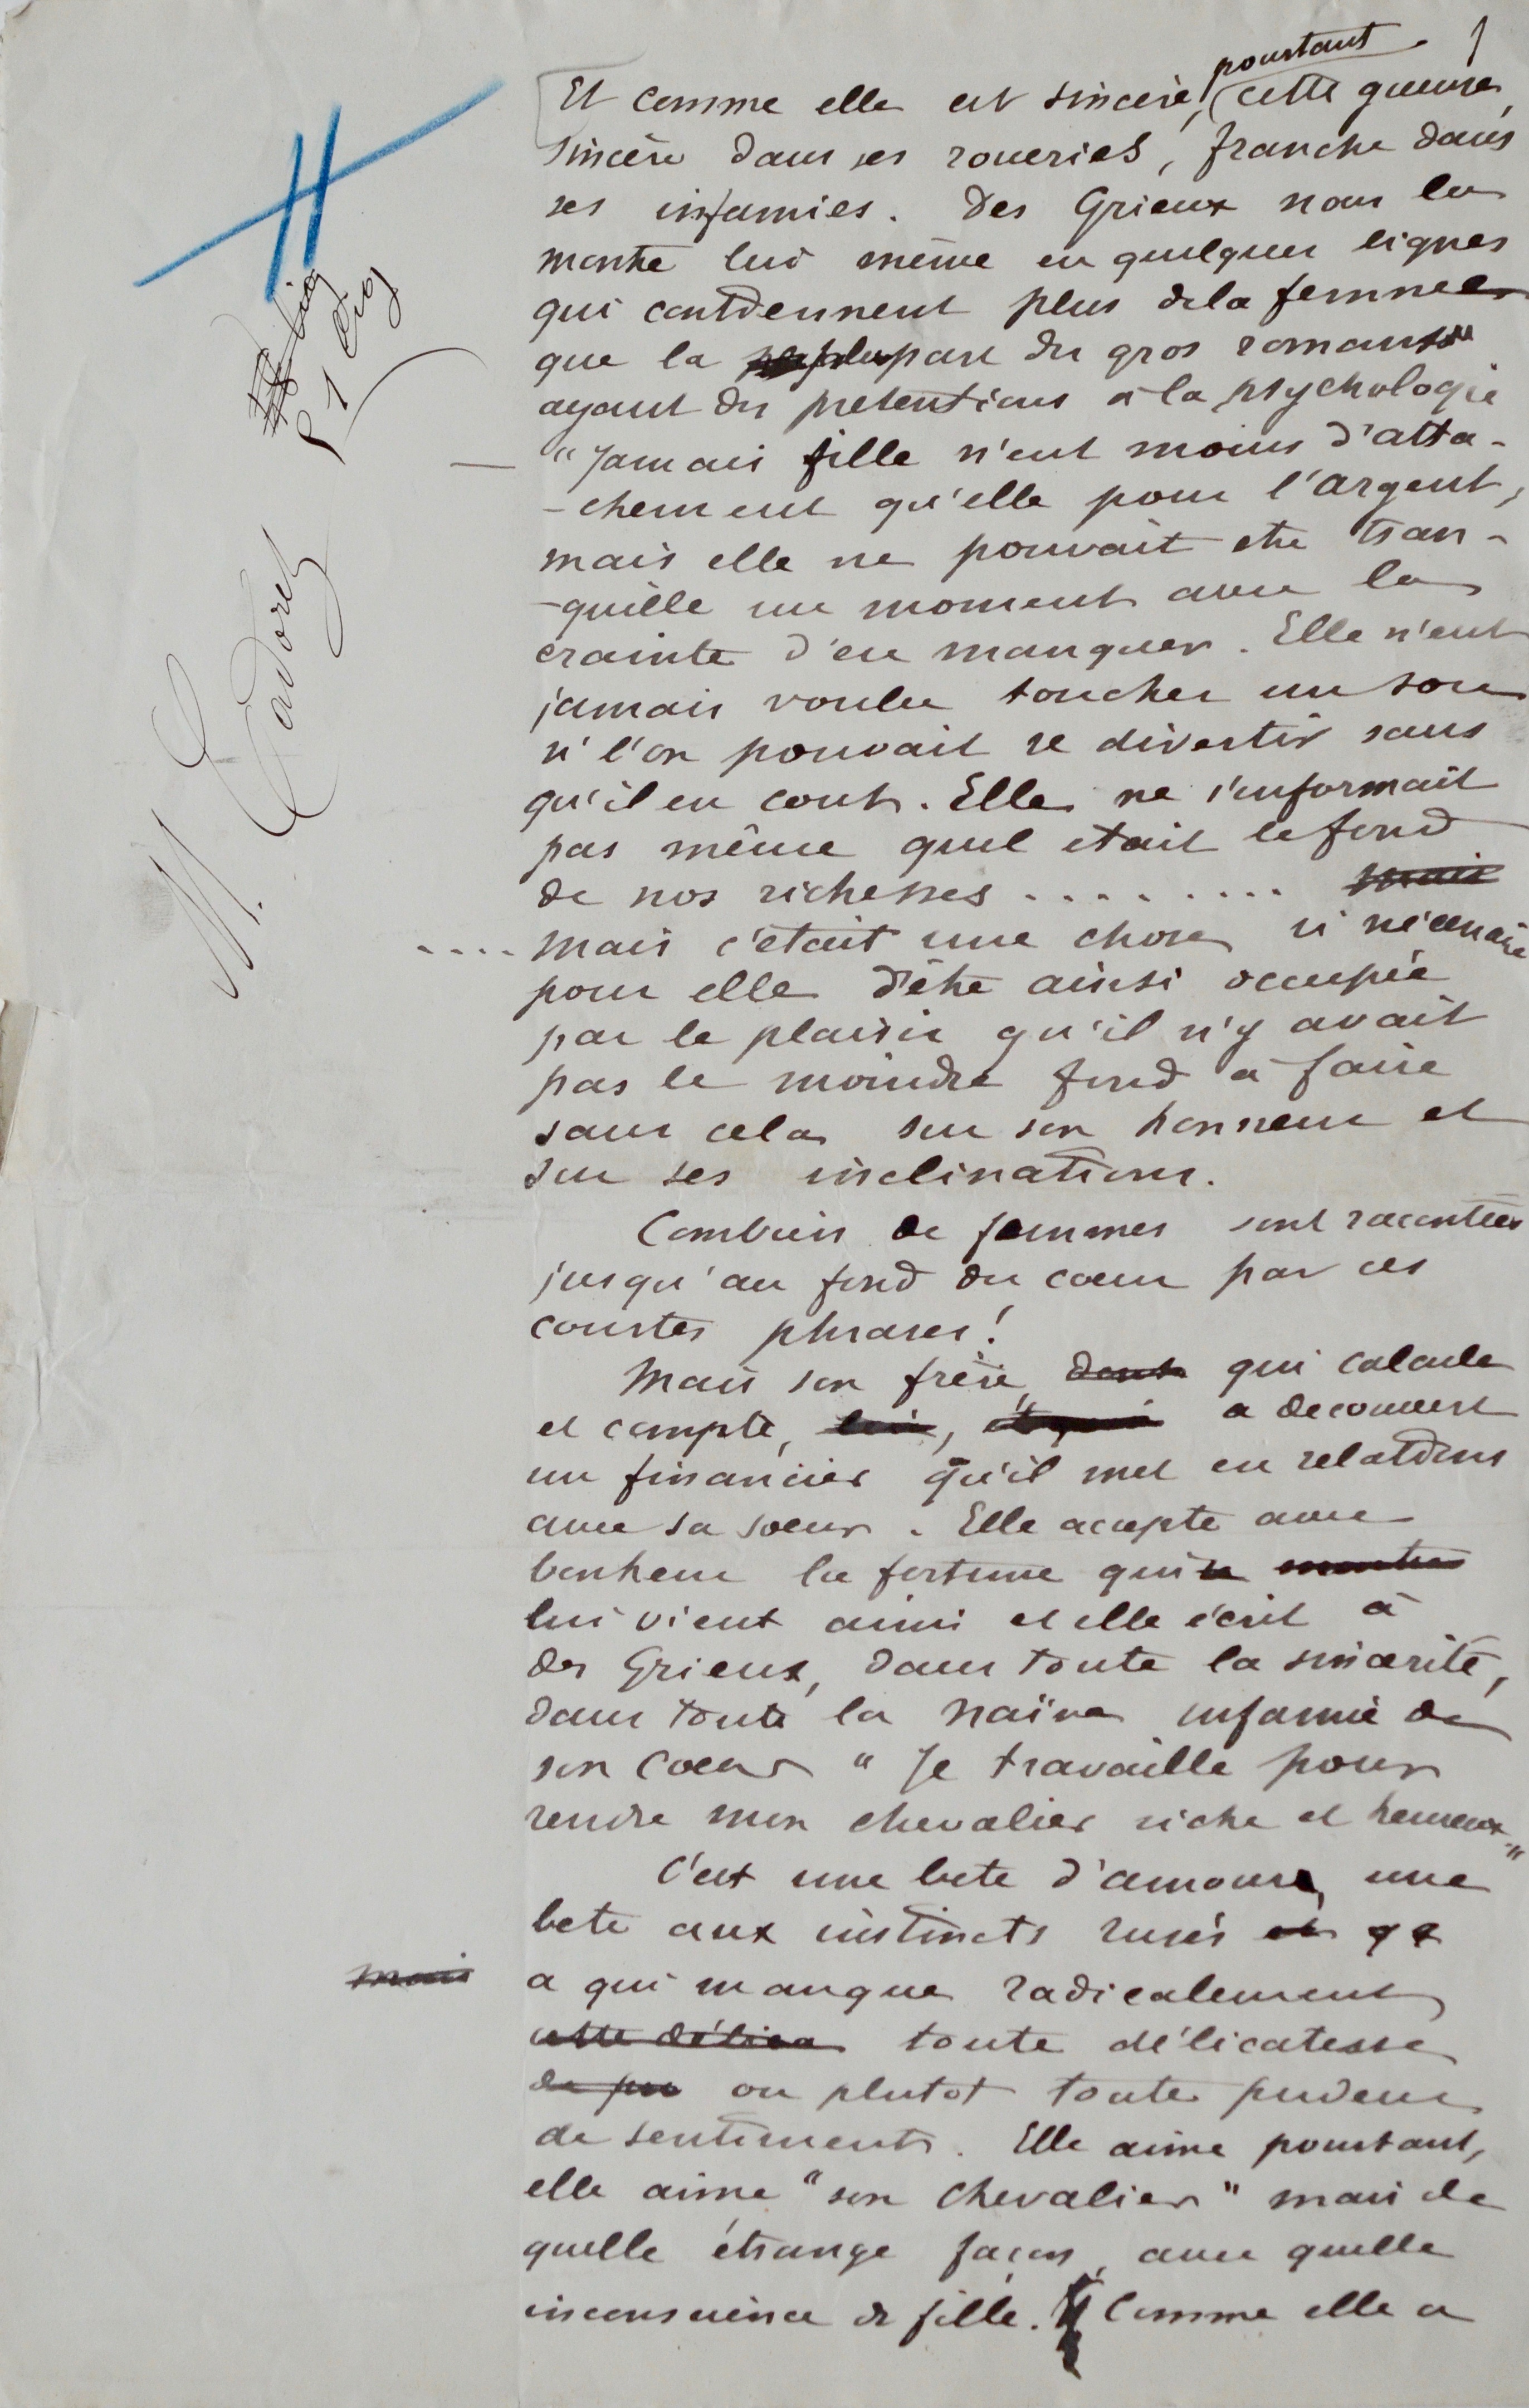 pourtant
Et comme elle est sincère, cette gueuse,
sincère dans ses roueries, franche dans
ses infamies. Des Grieux nous la
montre lui même en quelques lignes
qui contiennent plus de la femme
que la plupart des gros romans
ayant des pretentions à la psychologie
— "Jamais fille n'eut moins d'atta-
-chement qu'elle pour l'argent,
mais elle ne pouvait etre tran-
-quille un moment avec la
crainte d'en manquer. Elle n'eut
jamais voulu toucher un sou
si l'on pouvait se divertir sans
qu'il en cout. Elle ne s'informait
pas même quel etait le fond
de nos richesses ......... mais
.... mais c'était une chose si nécessaire
pour elle d'être ainsi occupée
par le plaisir qu'il n'y avait
pas le moindre fond à faire
sans cela sur son honneur et
sur ses inclinations.
Combien de femmes sont racontées
jusqu'au fond du coeur par ces
courtes phrases!
Mais son frère, dont qui calcule
et compte, lui, et qui a decouvert
un financier qu'il met en relations
avec sa soeur. Elle accepte avec
bonheur la fortune qui montre
lui vient ainsi et elle écrit à
des Grieux, dans toute la sincérité,
dans toute la naïve infamie de
son coeur " Je travaille pour
rendre mon chevalier riche et heureux"
C'est une bete d'amour, une
bete aux instincts rusés et
mais a qui manque radicalement
cette délica toute délicatesse
de pu ou plutot toute pudeur
de sentiments. Elle aime pourtant,
elle aime "son chevalier" mais de
quelle étrange façon, avec quelle
inconscience de fille. Comme elle a
M. Cadoret